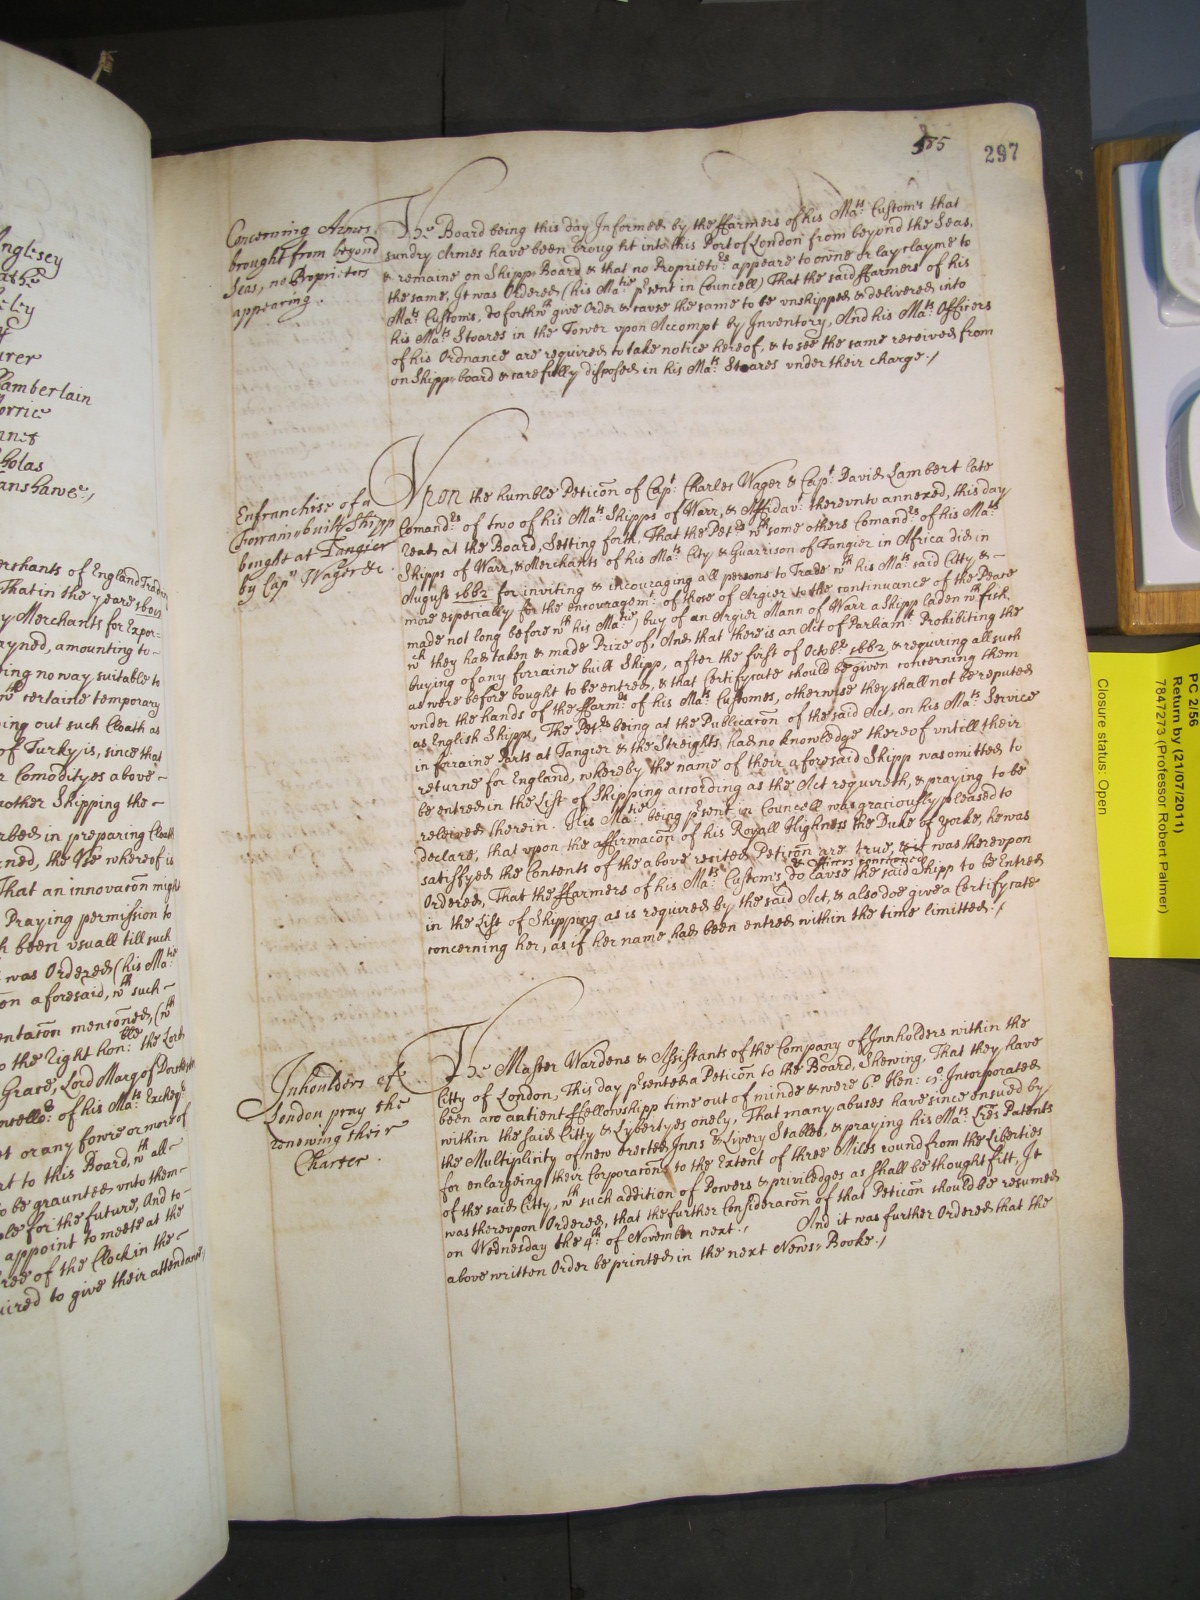 555
297
Concerning Armes
brought from beyond
Seas, no Proprietors
appearing.
The Board being this day Informed by the ffarmers of his Ma:ts Customs that
sundry Armes have been brought into this Port of London from beyond the Seas,
& remaine on Shipp Board & that no Propriet:rs appeare to owne or lay clayme to
the same, It was Ordered (his Ma:tie p'sent in Councell) That the said ffarmers of his
Ma:ts Customs, do forthwth give Order & cause the same to be vnshipped & delivered into
his Ma:ts Stoares in the Tower vpon Accompt by Inventory, And his Ma:ts Officers
of his Ordnance are required to take notice hereof, & to see the same received from
on Shipp-board & carefully disposed in his Ma:ts Stoares vnder their charge./
Enfranchise of a
Forraine built Shipp
bought at Tangier
by Cap:n Wager &c.
Vpon the humble Peticõn of Cap:t Charles Wager & Cap:t David Lambert late
Comand:rs of two of his Ma:ts Shipps of Warr, & Affidav:t therevnto annexed, this day
read at the Board, Setting forth, That the Pet:rs wth some others Comand:rs of his Ma:ts
Shipps of Warr, & Merchants of his Ma:ts City & Guarrison of Tangier in Africa did in
August 1662 for inviting & incouraging all persons to Trade wth his Ma:ts said Citty & –
more especially for the encouragem:t of those of Argier to the continuance of the Peace
made not long before wth his Ma:tie, buy of an Argier Mann of Warr a Shipp laden wth fish,
wch they had taken & made Prize of, And that there is an Act of Parliam:t Prohibiting the
buying of any forraine built Shipp, after the first of Octob:r 1662 & requiring all such
as were before bought to be entred, & that Certifycate should be given concerning them
vnder the hands of the ffarm:rs of his Ma:ts Customes, otherwise they shall not be reputed
as English Shipps, The Pet:rs being at the Publicacõn of the said Act, on his Ma:ts Service
in forraine Parts at Tangier & the Streights, had no knowledge thereof vntill their
returne for England, whereby the name of their aforesaid Shipp was omitted to
be entred in the List of Shipping according as the Act requireth, & praying to be
releived therein. His Ma:tie being p'sent in Councell was graciously pleased to
declare, that vpon the affirmacõn of his Royall Highness the Duke of Yorke, he was
satisfyed the Contents of the above recited Peticõn are true, & it was therevpon
& Officers concerned
Ordered, That the ffarmers of his Ma:ts Customs do cause the said Shipp to be Entred
in the List of Shipping as is required by the said Act, & also doe give a Certifycate
concerning her, as if her name had been entred within the time limitted./
Inhoulders of
London pray the
renewing their
Charter.
The Master Wardens & Assistants of the Company of Innholders within the
Citty of London, This day p'sented a Peticõn to the Board, Shewing, That they have
been an antient ffellowshipp time out of minde & were 6:o Hen: 8:i Incorporated
within the said Citty & Lybertyes onely, That many abuses have since ensued by
the Multiplicity of new erected Inns & Livery Stables, & praying his Ma:ts Lr̃es Patents
for enlargeing their Corporacõn to the Extent of three Miles round from the Liberties
of the said Citty, wth such addition of Powers & priviledges as shall be thought fitt, It
was therevpon Ordered, that the further Consideracõn of that Peticõn should be resumed
on Wednesday the 4:th of November next./ And it was further Ordered that the
above written Order be printed in the next News-Booke./
Anglesey
Chamberlain
Morrice
Nicholas
Merchants of England Trading
That in the yeare 1601
Merchants for Expor-
amounting to –
being no way suitable to
wth certaine temporary
out such Cloath as
of Turky is, since that
Comodityes above –
another Shipping the –
in preparing Cloath
the Vse whereof is
That an innovacõn might
Praying permission to
been vsuall till such
was Ordered (his Ma:tie
aforesaid, wth such –
mencõned, (wth
to the Right hon:ble the Lord
Grace, Lord Marq of Dorchester
of his Ma:ts Excheq:r
or any fowre or more of
to this Board, wth all –
be graunted vnto them –
for the future, And to –
appoint to meete at the
of the Clock in the –
required to give their attendance/
PC 2/56
Return by (21/07/2011)
7847273 (Professor Robert Palmer)
Closure status: Open